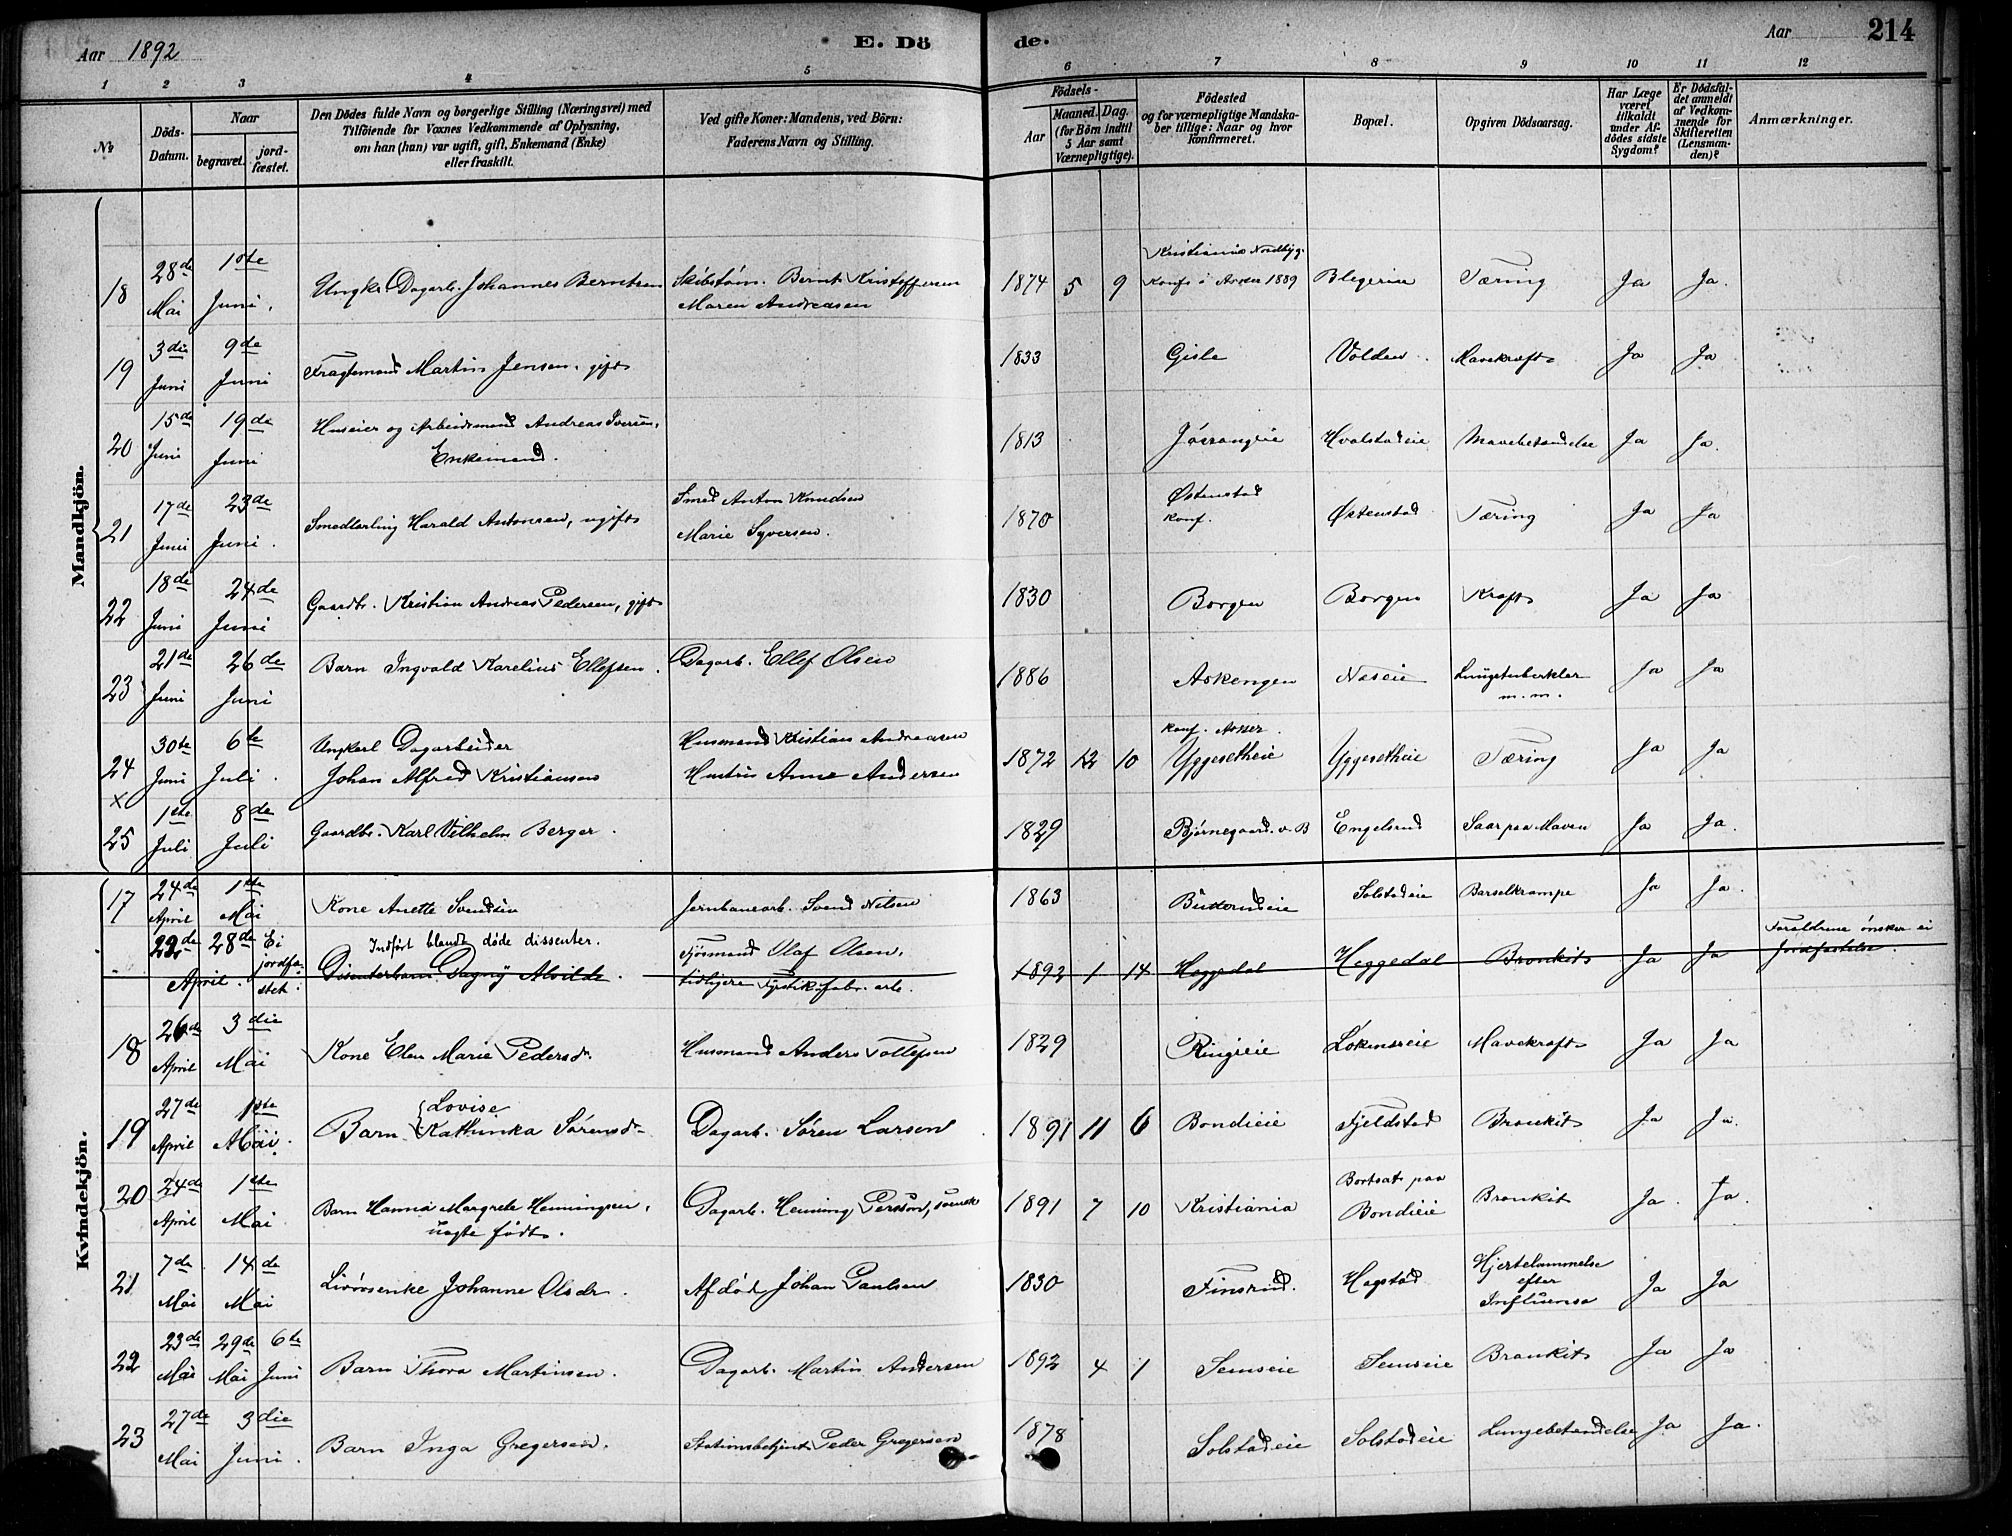 Aar 1892
E. Dö
de.
Aar
214
1 2 3 4 5 6 7 8 9 10 11 12
No
Döds-Datum.
Naar
begravet.
jord-fæstet.
Den Dödes fulde Navn og borgerlige Stilling (Næringsvei) med
Tilföiende for Voxnes Vedkommende af Oplysning,
om han (hun) var ugift, gift, Enkemand (Enke)
eller fraskilt.
Ved gifte Koner: Mandens, ved Börn:
Faderens Navn og Stilling.
Födsels-
Aar
Maaned. Dag.
(for Börn indtil
5 Aar samt
Værnepligtige).
Födested
og for værnepligtige Mandska-
ber tillige: Naar og hvor
konfirmeret.
Bopæl.
Opgiven Dödsaarsag.
Har Læge
været
tilkaldt
under Af-
dödes sidste
Sygdom?
Er Dödsfal-
det anmeldt
af Vedkom-
mende for
Skifteretten
(Lensman-
den)?
Anmærkninger.
Mandkjön.
18 28de Mai 1ste Juni. Ungk. Dagarb. Johannes Berntsen Skibstøm. Bernt Kristoffersen Maren Andreasen 1874 5 9 Kristiania Konf. i Asker 1889 Blegerine Tæring Ja Ja.
19 3die Juni 9de Juni Fragtemand Martin Jensen, gift 1833 Gisle Volden. Mavekræft Ja Ja
20 15de Juni 19de Juni Huseier og Arbeidsmand Andreas Iversen, Enkemand. 1813 Hvalstadeie Mavebetændelse Ja Ja.
21 17de Juni 23de Juni. Smedlærling Harald Antonsen, ugift Smed Anton Knudsen Marie Syversen. 1870 Østenstad konf. Østenstad Tæring Ja Ja
22 18de Juni 24de Juni Gaardb. Kristian Andreas Pedersen, gift 1830 Borgen Borgen Kræft Ja Ja
23 21de Juni 26de Juni Barn Ingvald Karelius Ellefsen. Dagarb. Ellef Olsen 1886 Askengen Næseie Lungetuberkler m.m. Ja Ja
24 30te Juni 6te Juli. Ungkarl Dagarbeider Johan Alfred Kristiansen Husmand Kristian Andreasen Hustru Anne Andersen 1872 12 10 konf. Asker. Yggesetheie Yggesetheie Tæring Ja Ja
x
25 1ste Juli 8de Juli Gaardb. Karl Vilhelm Berger. 1829 Bjørnegaard. v. B Engelsrud Saar paa Maven Ja Ja.
Kvindekjön.
17 24de April 1ste Mai Kone Anette Svendsen Jernbanearb. Svend Nilsen 1863 Solstadeie Barselkrampe Ja Ja.
22de April. 28de Ei jordfæstet. Indført blandt døde dissenter. Dissenterbarn Dagny Alvilde. Olaf Olsen, tidligere arb. 1892 1 14 Heggedal Heggedal Bronkit Ja Ja Forældrene ønsker ei Jordfæstelse.
18 26de April 3die Mai Kone Elen Marie Pedersd. Husmand Anders Tollefsen 1829 Ringieie Løkenseie Mavekræft Ja Ja
19 27de April 1ste Mai. Barn Lovise Kathinka Sørensd. Dagarb. Søren Larsen 1891 11 6 Bondieie Fjeldstad Bronkit Ja Ja.
20 24de April 1ste Mai Barn Hanna Margrete Henningsen, uægte født. Dagarb. Henning Persson, svensk 1891 7 10 Kristiania Bortsat paa Bondieie Bronkit Ja. Ja.
21 7de Mai 14de Mai Livørsenke Johanne Olsdr. Afdød Johan Paulsen 1830 Finsrud. Hogstad Hjertelammelse efter Influensa Ja Ja
22 23de Mai 29de Mai 6te Juni Barn Thora Martinsen. Dagarb. Martin Andersen 1892 4 1 Semseie Semseie Bronkit Ja Ja
23 27de Mai 3die Juni. Barn Inga Gregersen. Stationsbetjent Peder Gregersen 1878 Solstadeie Solstadeie Lungebetændelse Ja Ja.